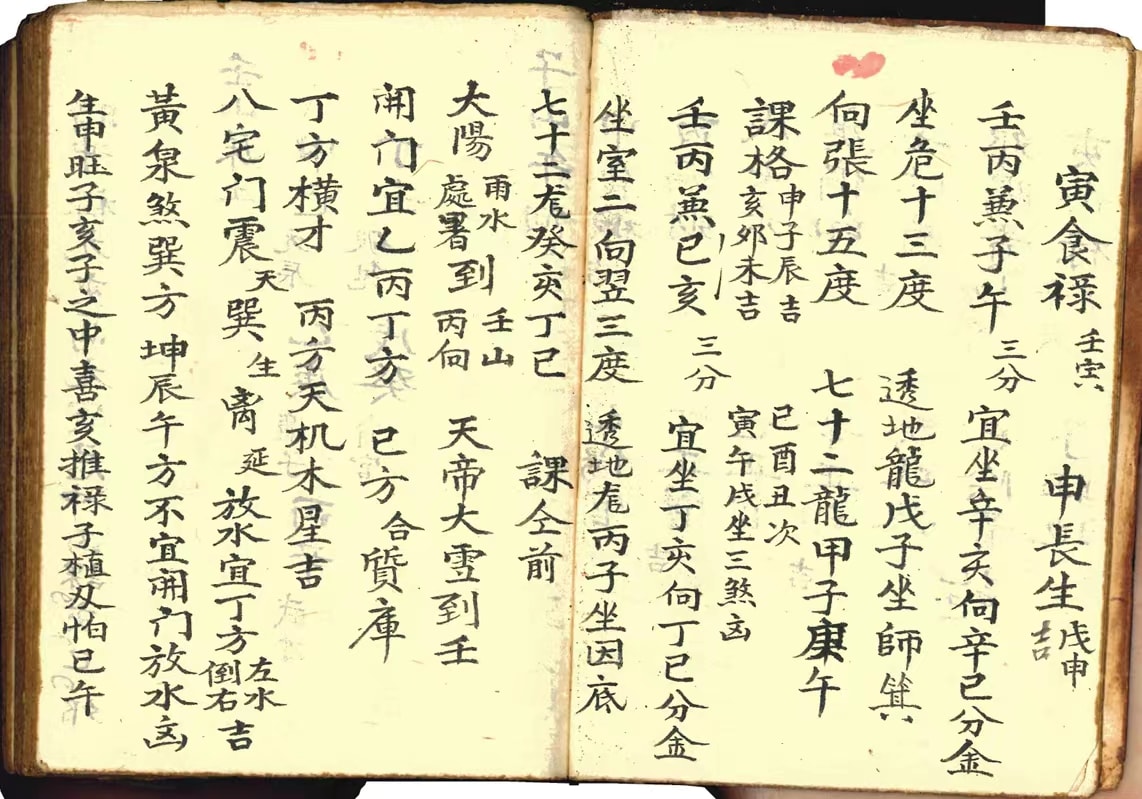 寅食禄 壬寅 申長生 戊申吉
壬丙兼子午 三分 宜坐辛亥向辛巳分金
坐危十三度 透地龍戊子坐師箕
向張十五度 七十二龍甲子庚午
課格 申子辰吉 亥卯未吉 巳酉丑次 寅午戌坐三煞凶
壬丙兼巳亥 三分 宜坐丁亥向丁巳分金
坐室二向翌三度 透地尨丙子坐因底
七十二尨癸亥丁巳 課仝前
大陽 雨水 處暑 到 壬山 丙向 天帝大雪到壬
開门宜乙丙丁方 巳方 合質庫
丁方横才 丙方天机木星吉
八宅门震天 巽生 离延 放水宜丁方 左水倒右 吉
黃泉煞巽方 坤辰午方不宜開门放水凶
生申旺子亥子之中喜亥推禄子植刄怕巳午